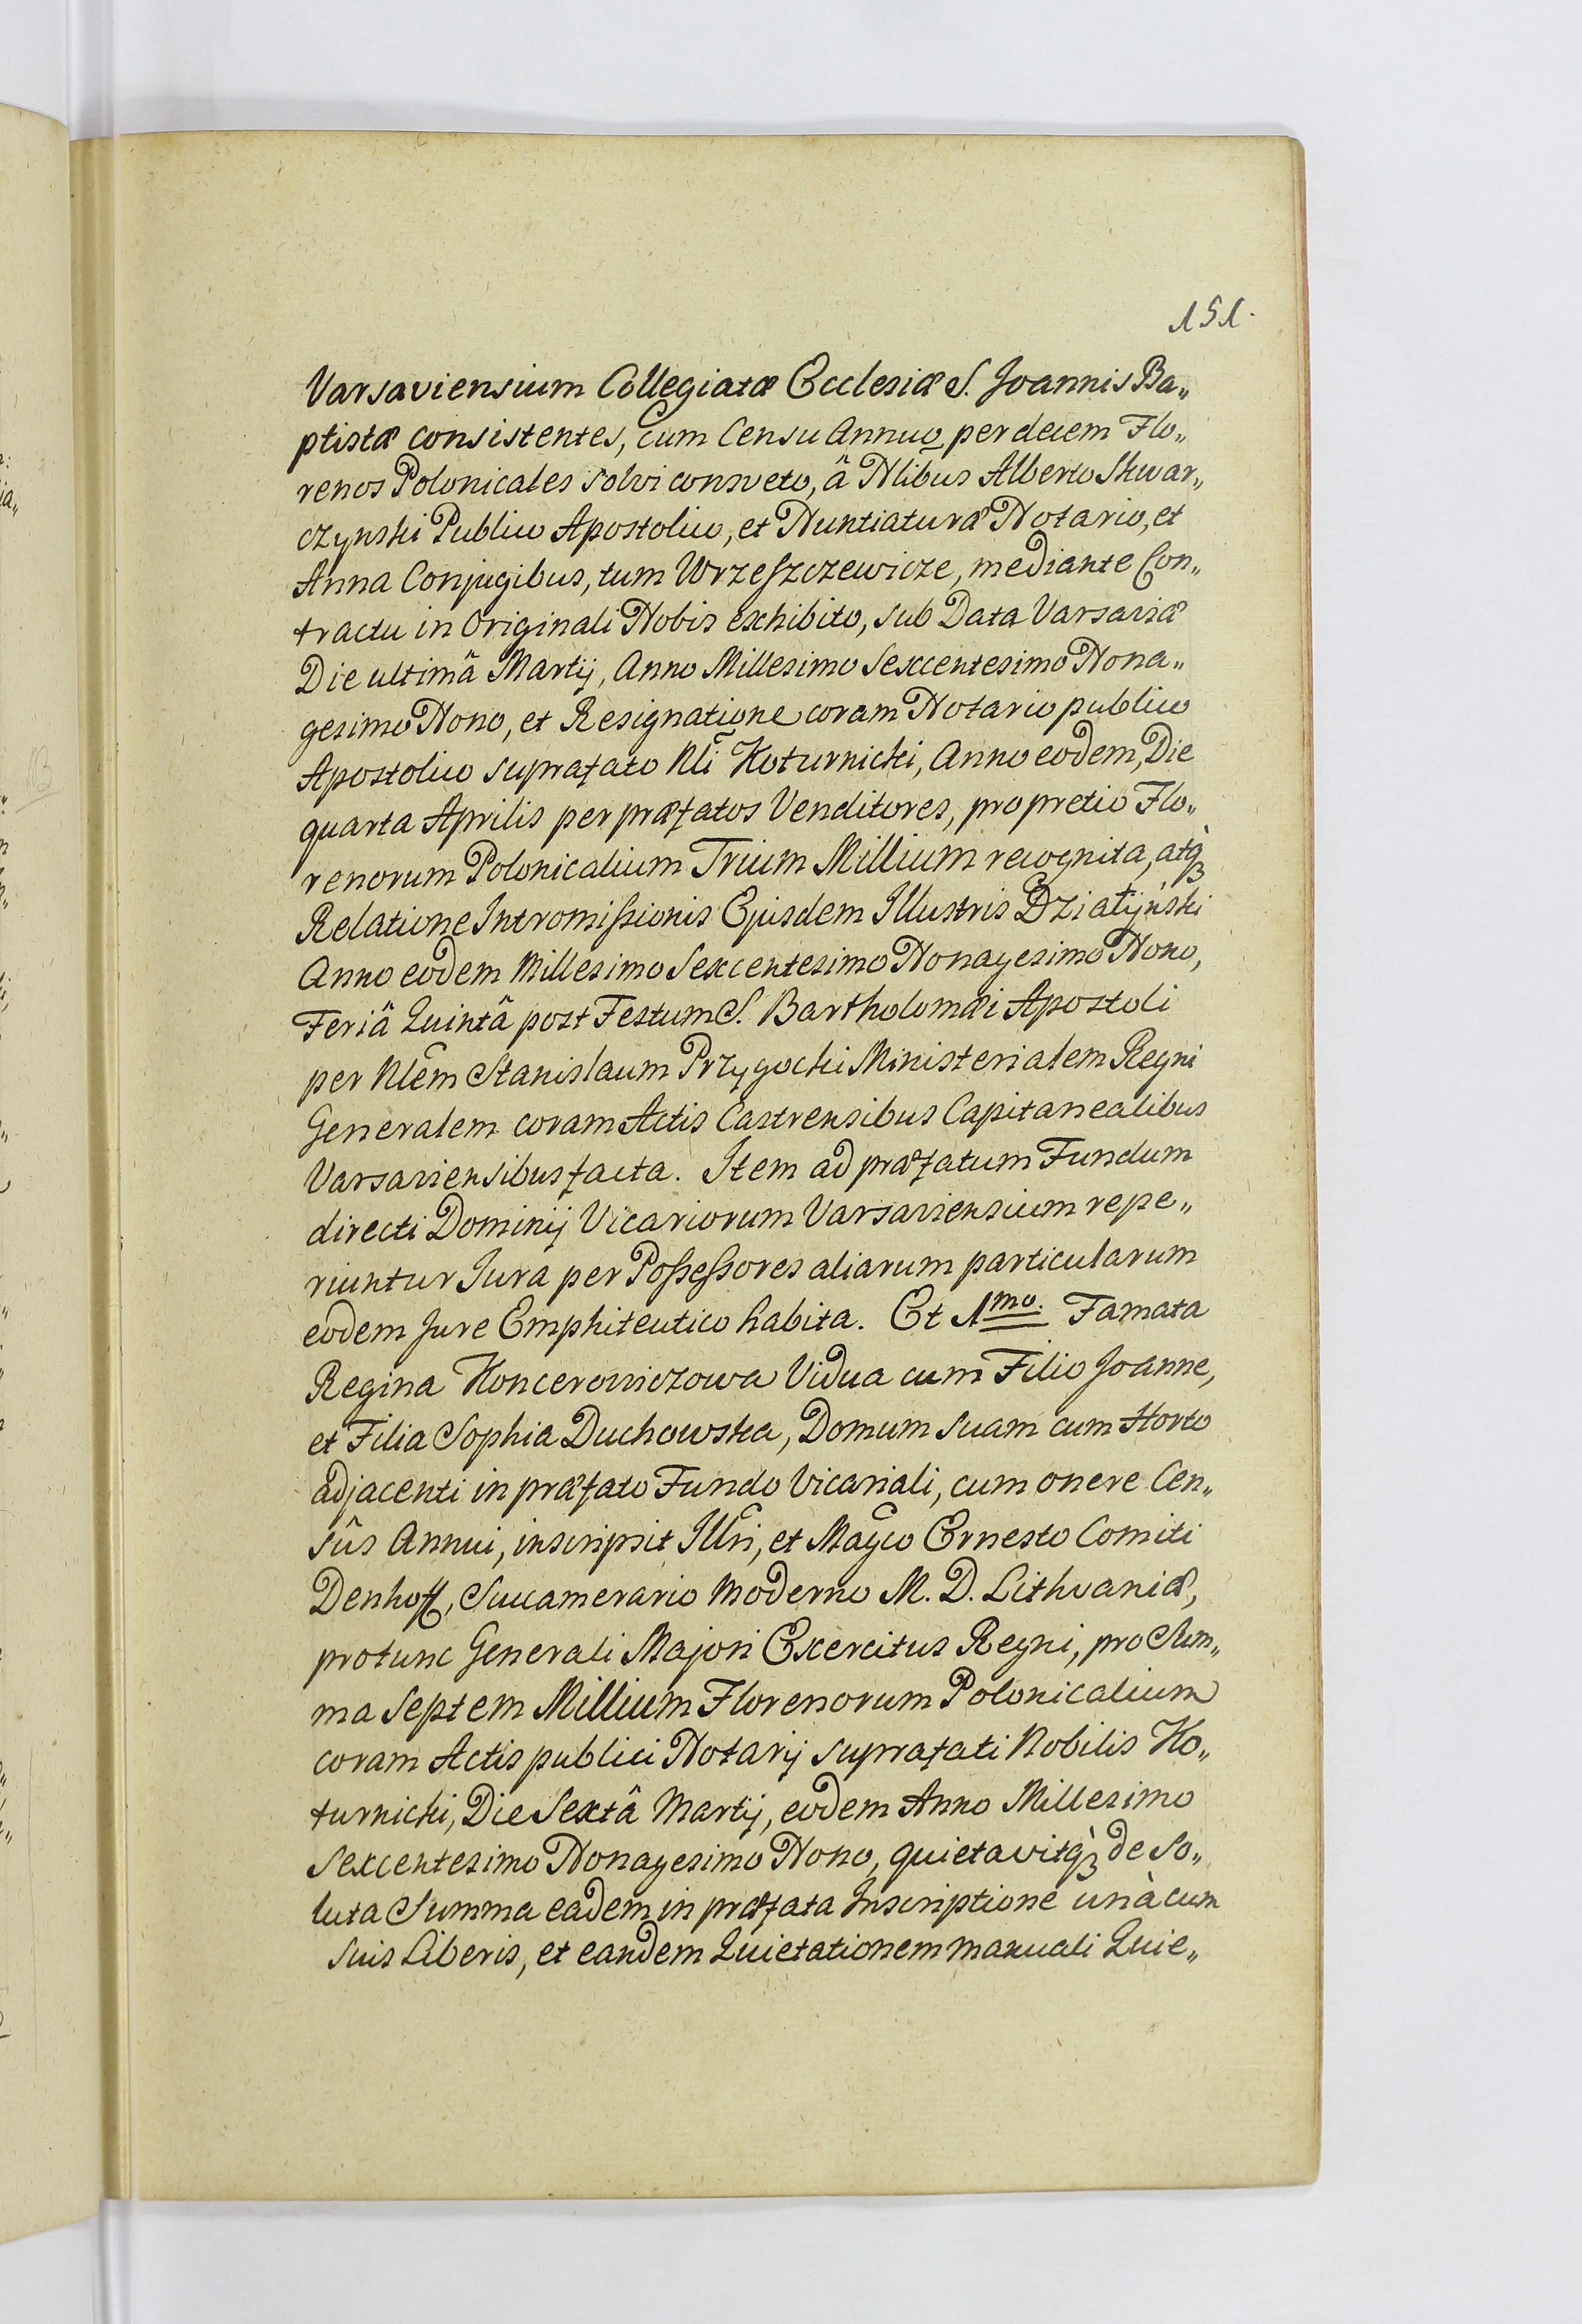 151.
Varsaviensium Collegiatæ Ecclesiæ S. Joannis Ba„
ptistæ consistentes, cum Censu Annuo per decem Flo„
renos Polonicales solvi consveto, â Nlibus Alberto Skwar„
czynski Publico Apostolico, et Nuntiaturæ Notario, et
Anna Conjugibus, tum Wrzeszczewicze, mediante Con„
tractu in Originali Nobis exhibito, sub Data Varsaviæ
Die ultimâ Martij, Anno Millesimo Sexcentesimo Nona„
gesimo Nono, et Resignatione coram Notario publico
Apostolico suprafato Nli Koturnicki, Anno eodem, Die
quarta Aprilis per præfatos Venditores, pro pretio Flo„
renorum Polonicalium Trium Millium recognita, atq̀3
Relatione Intromissionis Ejusdem Illustris Działyński
Anno eodem Millesimo Sexcentesimo Nonagesimo Nono,
Feriâ Quintâ post Festum S. Bartholomæi Apostoli
per Nlem Stanislaum Przygocki Ministerialem Regni
Generalem coram Actis Castrensibus Capitanealibus
Varsaviensibus facta. Item ad præfatum Fundum
directi Dominij Vicariorum Varsaviensium repe„
riuntur Jura per Possessores aliarum particularum
eodem Jure Emphiteutico habita. Et 1mo. Famata
Regina Koncerowiczowa Vidua cum Filio Joanne,
et Filia Sophia Duchowska, Domum suam cum Horto
adjacenti in præfato Fundo Vicariali, cum onere Cen„
sûs Annui, inscripsit Illri, et Magco Ernesto Comiti
Denhoff, Succamerario Moderno M. D. Lithvaniæ,
protunc Generali Majori Exercitus Regni, pro Sum„
ma Septem Millium Florenorum Polonicalium
coram Actis publici Notarij suprafati Nobilis Ko„
turnicki, Die Sextâ Martij, eodem Anno Millesimo
Sexcentesimo Nonagesimo Nono, quietavitq̀3 de so„
luta Summa eadem in præfata Inscriptione unà cum
suis Liberis, et eandem Quietationem manuali Quie„